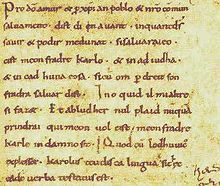 Pro dō amur & p xpian poblo & nrō comun
saluament . dist di en auant . inquantdſ
sauir & podir medunat . sisaluaraieo .
cist meonfradre Karlo . & in aiudha
& in cad huna cosa . sicū om p dreit son
fradra saluar dist . Ino quid il mialtre
si faz& . Et abludher nul plaid nūquā
prindrai qui meon uol cist meonfradre
Karle in damno sit . Quod cū lodhuuic
explesset . Karolus teudisca lingua
eadē uerba testatus est .